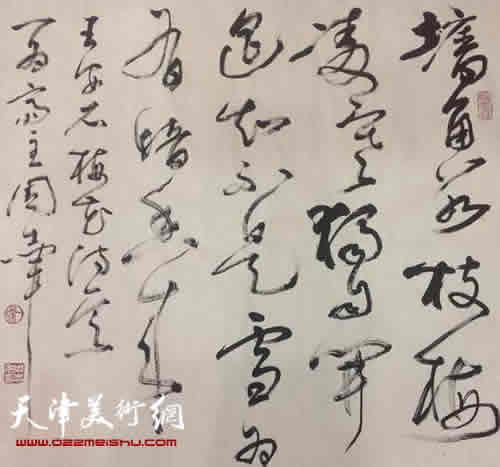 墻角数枝梅
凌寒獨自開
遥知不是雪为
有暗香来
王安石梅花诗意
斋主周
天津美術網
www.022meishu.com